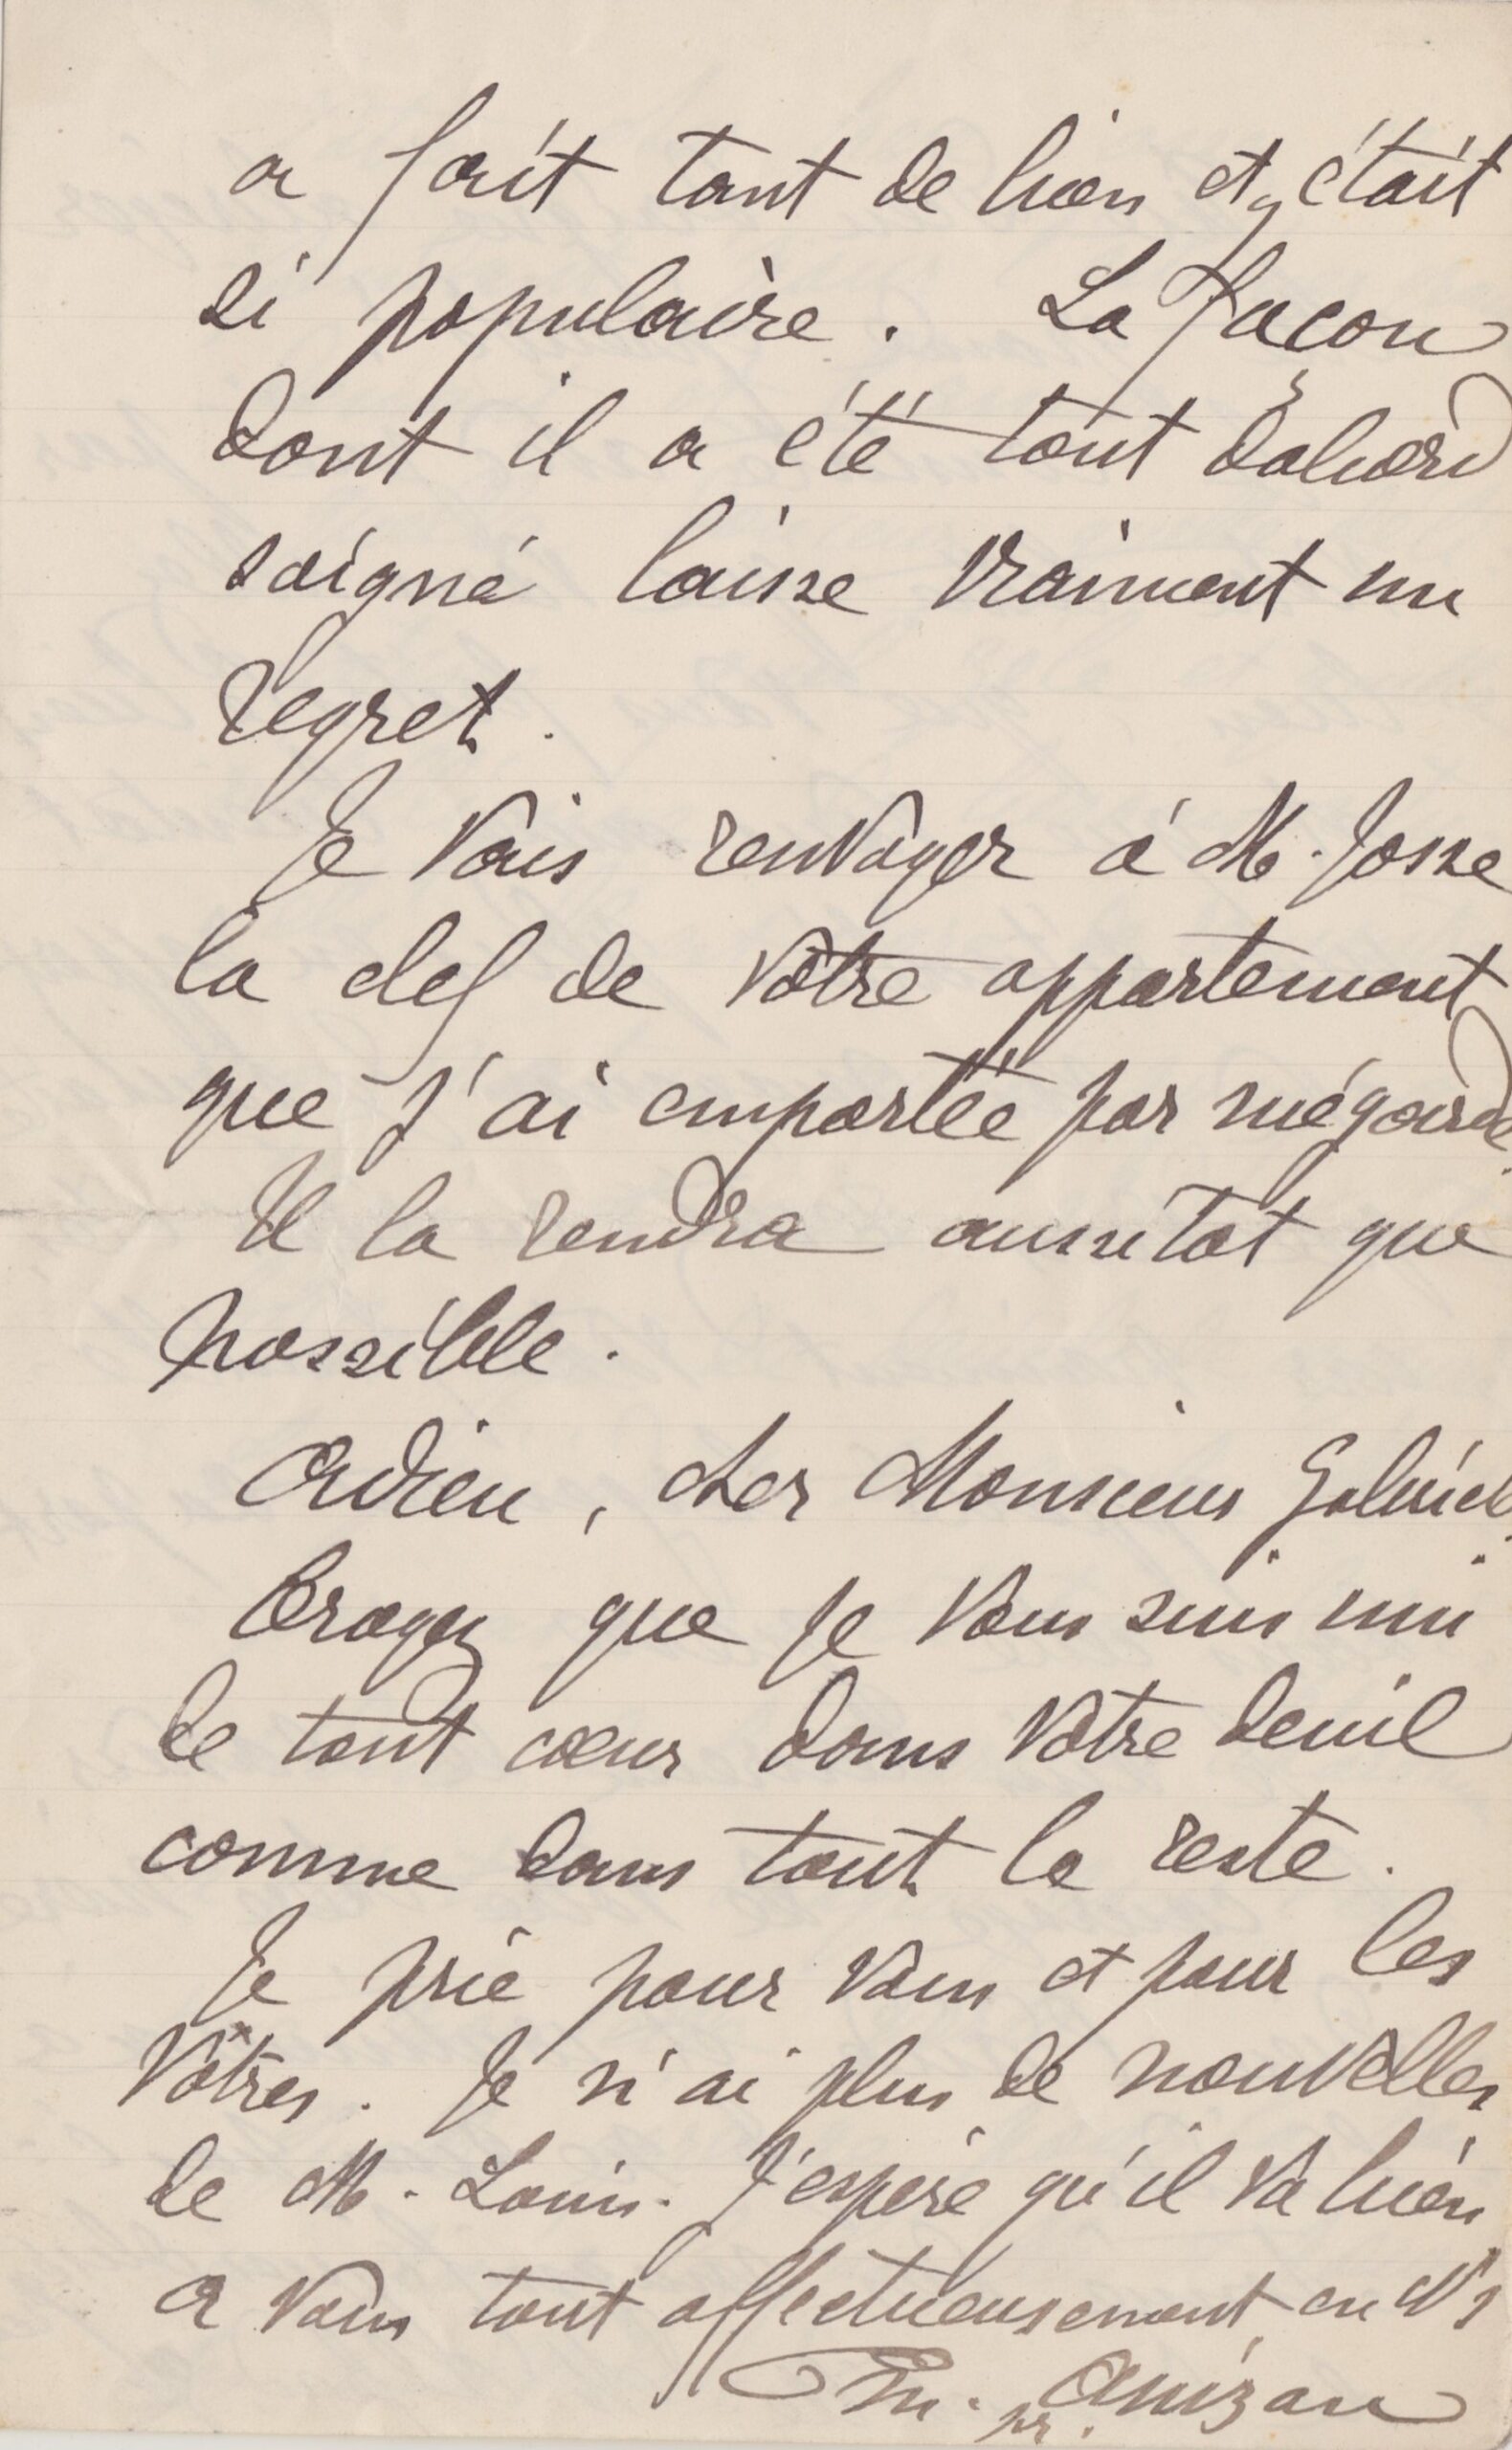 a fait tant de bien et y était
si populaire. La façon
dont il a été tout d'abord
soigné laisse vraiment un
regret.
Je vais renvoyer à M. Josse
la clef de votre appartement
que j'ai emportée par mégarde.
Il la rendra aussitôt que
possible.
Adieu, cher Monsieur Gabriel.
Croyez que je vous suis uni
de tout cœur dans votre deuil
comme dans tout le reste.
Je prie pour vous et pour les
vôtres. Je n'ai plus de nouvelles
de M. Louis. J'espère qu'il va bien
A vous tout affectueusement en N S
Em. Anizan
pr.